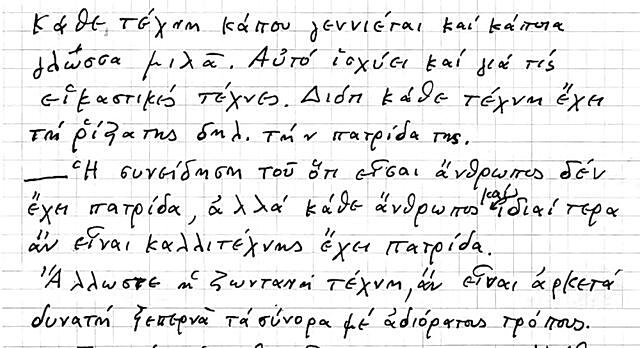 Κάθε τέχνη κάπου γεννιέται καί κάποια
γλῶσσα μιλᾶ. Αὐτό ἰσχύει καί γιά τίς
εἰκαστικές τέχνες. Διότι κάθε τέχνη ἔχει
τή ρίζα της δηλ. τήν πατρίδα της.
— Ἡ συνείδηση τοῦ ὅτι εἶσαι ἄνθρωπος δέν
ἔχει πατρίδα, ἀλλά κάθε ἄνθρωπος καί ἰδιαίτερα
ἄν εἶναι καλλιτέχνης ἔχει πατρίδα.
Ἄλλωστε ἡ ζωντανή τέχνη, ἄν εἶναι ἀρκετά
δυνατή ξεπερνᾶ τά σύνορα μέ ἀδιόρατους τρόπους.